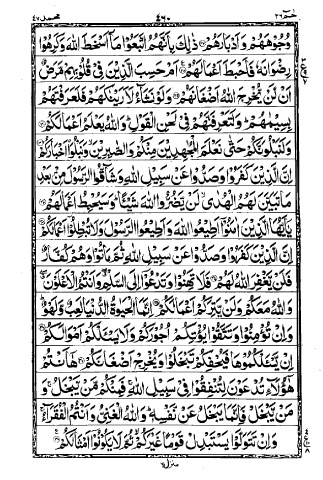 حٰمٓ ٢٦ ٤٦٠ محمد ٤٧
وُجُوْهَهُمْ وَاَدْبَارَهُمْ ذٰلِكَ بِاَنَّهُمُ اتَّبَعُوْا مَاۤ اَسْخَطَ اللّٰهَ وَكَرِهُوْا
رِضْوَانَهٗ فَاَحْبَطَ اَعْمَالَهُمْ اَمْ حَسِبَ الَّذِيْنَ فِيْ قُلُوْبِهِمْ مَّرَضٌ
اَنْ لَّنْ يُّخْرِجَ اللّٰهُ اَضْغَانَهُمْ وَلَوْ نَشَآءُ لَاَرَيْنٰكَهُمْ فَلَعَرَفْتَهُمْ
بِسِيْمٰهُمْ وَلَتَعْرِفَنَّهُمْ فِيْ لَحْنِ الْقَوْلِ وَاللّٰهُ يَعْلَمُ اَعْمَالَكُمْ
وَلَنَبْلُوَنَّكُمْ حَتّٰى نَعْلَمَ الْمُجٰهِدِيْنَ مِنْكُمْ وَالصّٰبِرِيْنَ وَنَبْلُوَا۟ اَخْبَارَكُمْ
اِنَّ الَّذِيْنَ كَفَرُوْا وَصَدُّوْا عَنْ سَبِيْلِ اللّٰهِ وَشَآقُّوا الرَّسُوْلَ مِنْۢ بَعْدِ
مَا تَبَيَّنَ لَهُمُ الْهُدٰى لَنْ يَّضُرُّوا اللّٰهَ شَيْـًٔا وَسَيُحْبِطُ اَعْمَالَهُمْ
يٰۤاَيُّهَا الَّذِيْنَ اٰمَنُوْۤا اَطِيْعُوا اللّٰهَ وَاَطِيْعُوا الرَّسُوْلَ وَلَا تُبْطِلُوْۤا اَعْمَالَكُمْ
اِنَّ الَّذِيْنَ كَفَرُوْا وَصَدُّوْا عَنْ سَبِيْلِ اللّٰهِ ثُمَّ مَاتُوْا وَهُمْ كُفَّارٌ
فَلَنْ يَّغْفِرَ اللّٰهُ لَهُمْ فَلَا تَهِنُوْا وَتَدْعُوْۤا اِلَى السَّلْمِ وَاَنْتُمُ الْاَعْلَوْنَ
وَاللّٰهُ مَعَكُمْ وَلَنْ يَّتِرَكُمْ اَعْمَالَكُمْ اِنَّمَا الْحَيٰوةُ الدُّنْيَا لَعِبٌ وَّلَهْوٌ
وَاِنْ تُؤْمِنُوْا وَتَتَّقُوْا يُؤْتِكُمْ اُجُوْرَكُمْ وَلَا يَسْـَٔلْكُمْ اَمْوَالَكُمْ
اِنْ يَّسْـَٔلْكُمُوْهَا فَيُحْفِكُمْ تَبْخَلُوْا وَيُخْرِجْ اَضْغَانَكُمْ هٰۤاَنْتُمْ
هٰۤؤُلَآءِ تُدْعَوْنَ لِتُنْفِقُوْا فِيْ سَبِيْلِ اللّٰهِ فَمِنْكُمْ مَّنْ يَّبْخَلُ وَ
مَنْ يَّبْخَلْ فَاِنَّمَا يَبْخَلُ عَنْ نَّفْسِهٖ وَاللّٰهُ الْغَنِيُّ وَاَنْتُمُ الْفُقَرَآءُ
وَاِنْ تَتَوَلَّوْا يَسْتَبْدِلْ قَوْمًا غَيْرَكُمْ ثُمَّ لَا يَكُوْنُوْۤا اَمْثَالَكُمْ